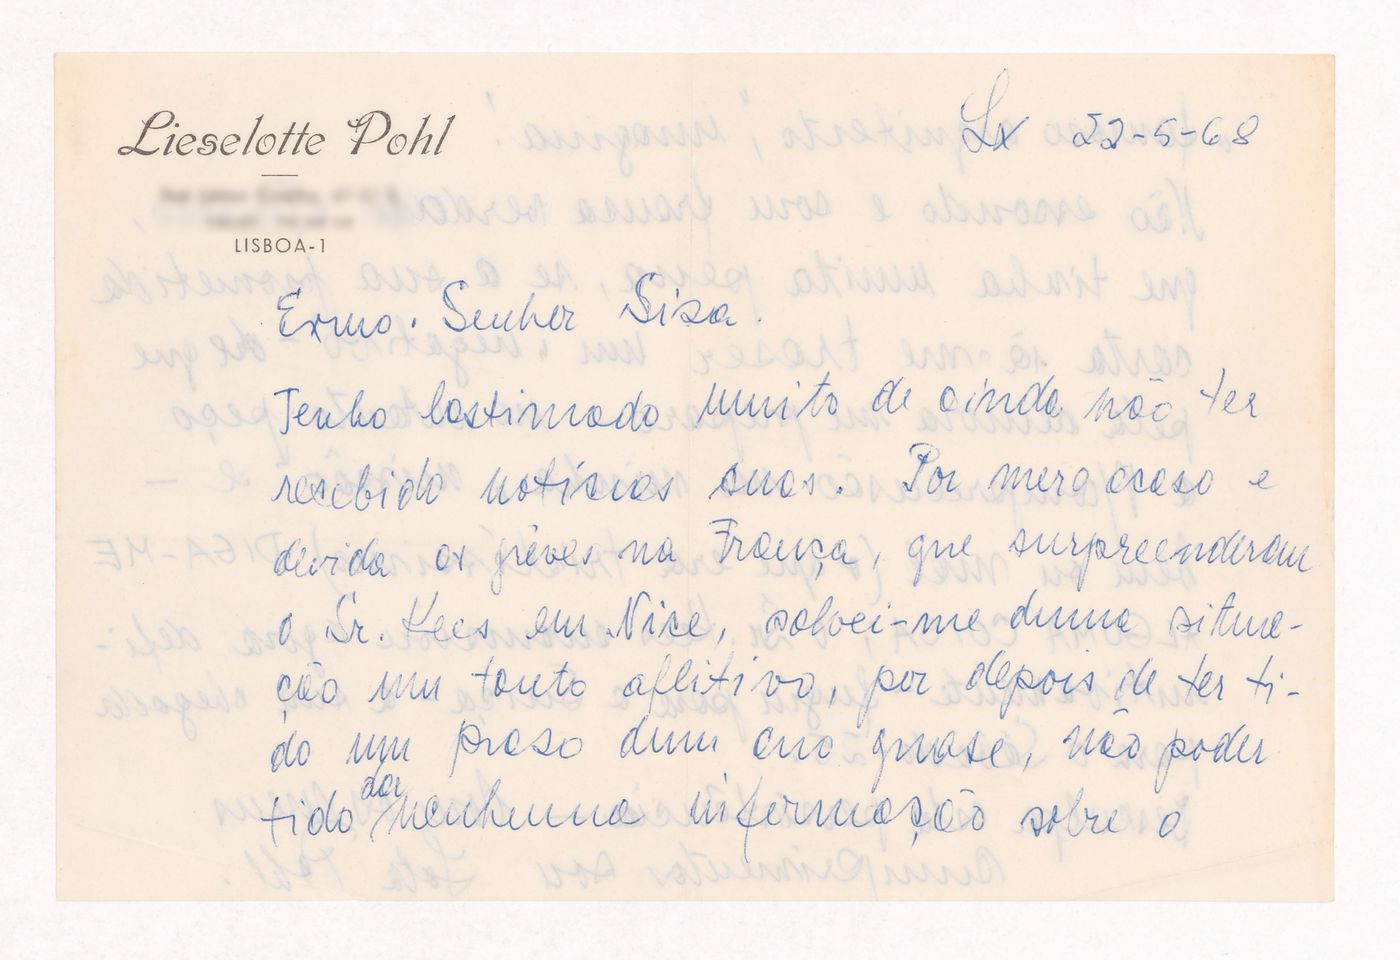 Lieselotte Pohl
LISBOA-1
Lx 22-5-68
Exmo. Senhor Sisa.
Tenho lastimado muito de ainda não ter
recebido notícias suas. Por mero acaso e
devido as grèves na França, que surpreenderam
o Sr. Kees em Nice, salvei-me duma situa-
ção um tanto aflitiva, por depois de ter ti-
do um praso dum ano quase, não poder
tido dar nenhuma informação sobre o